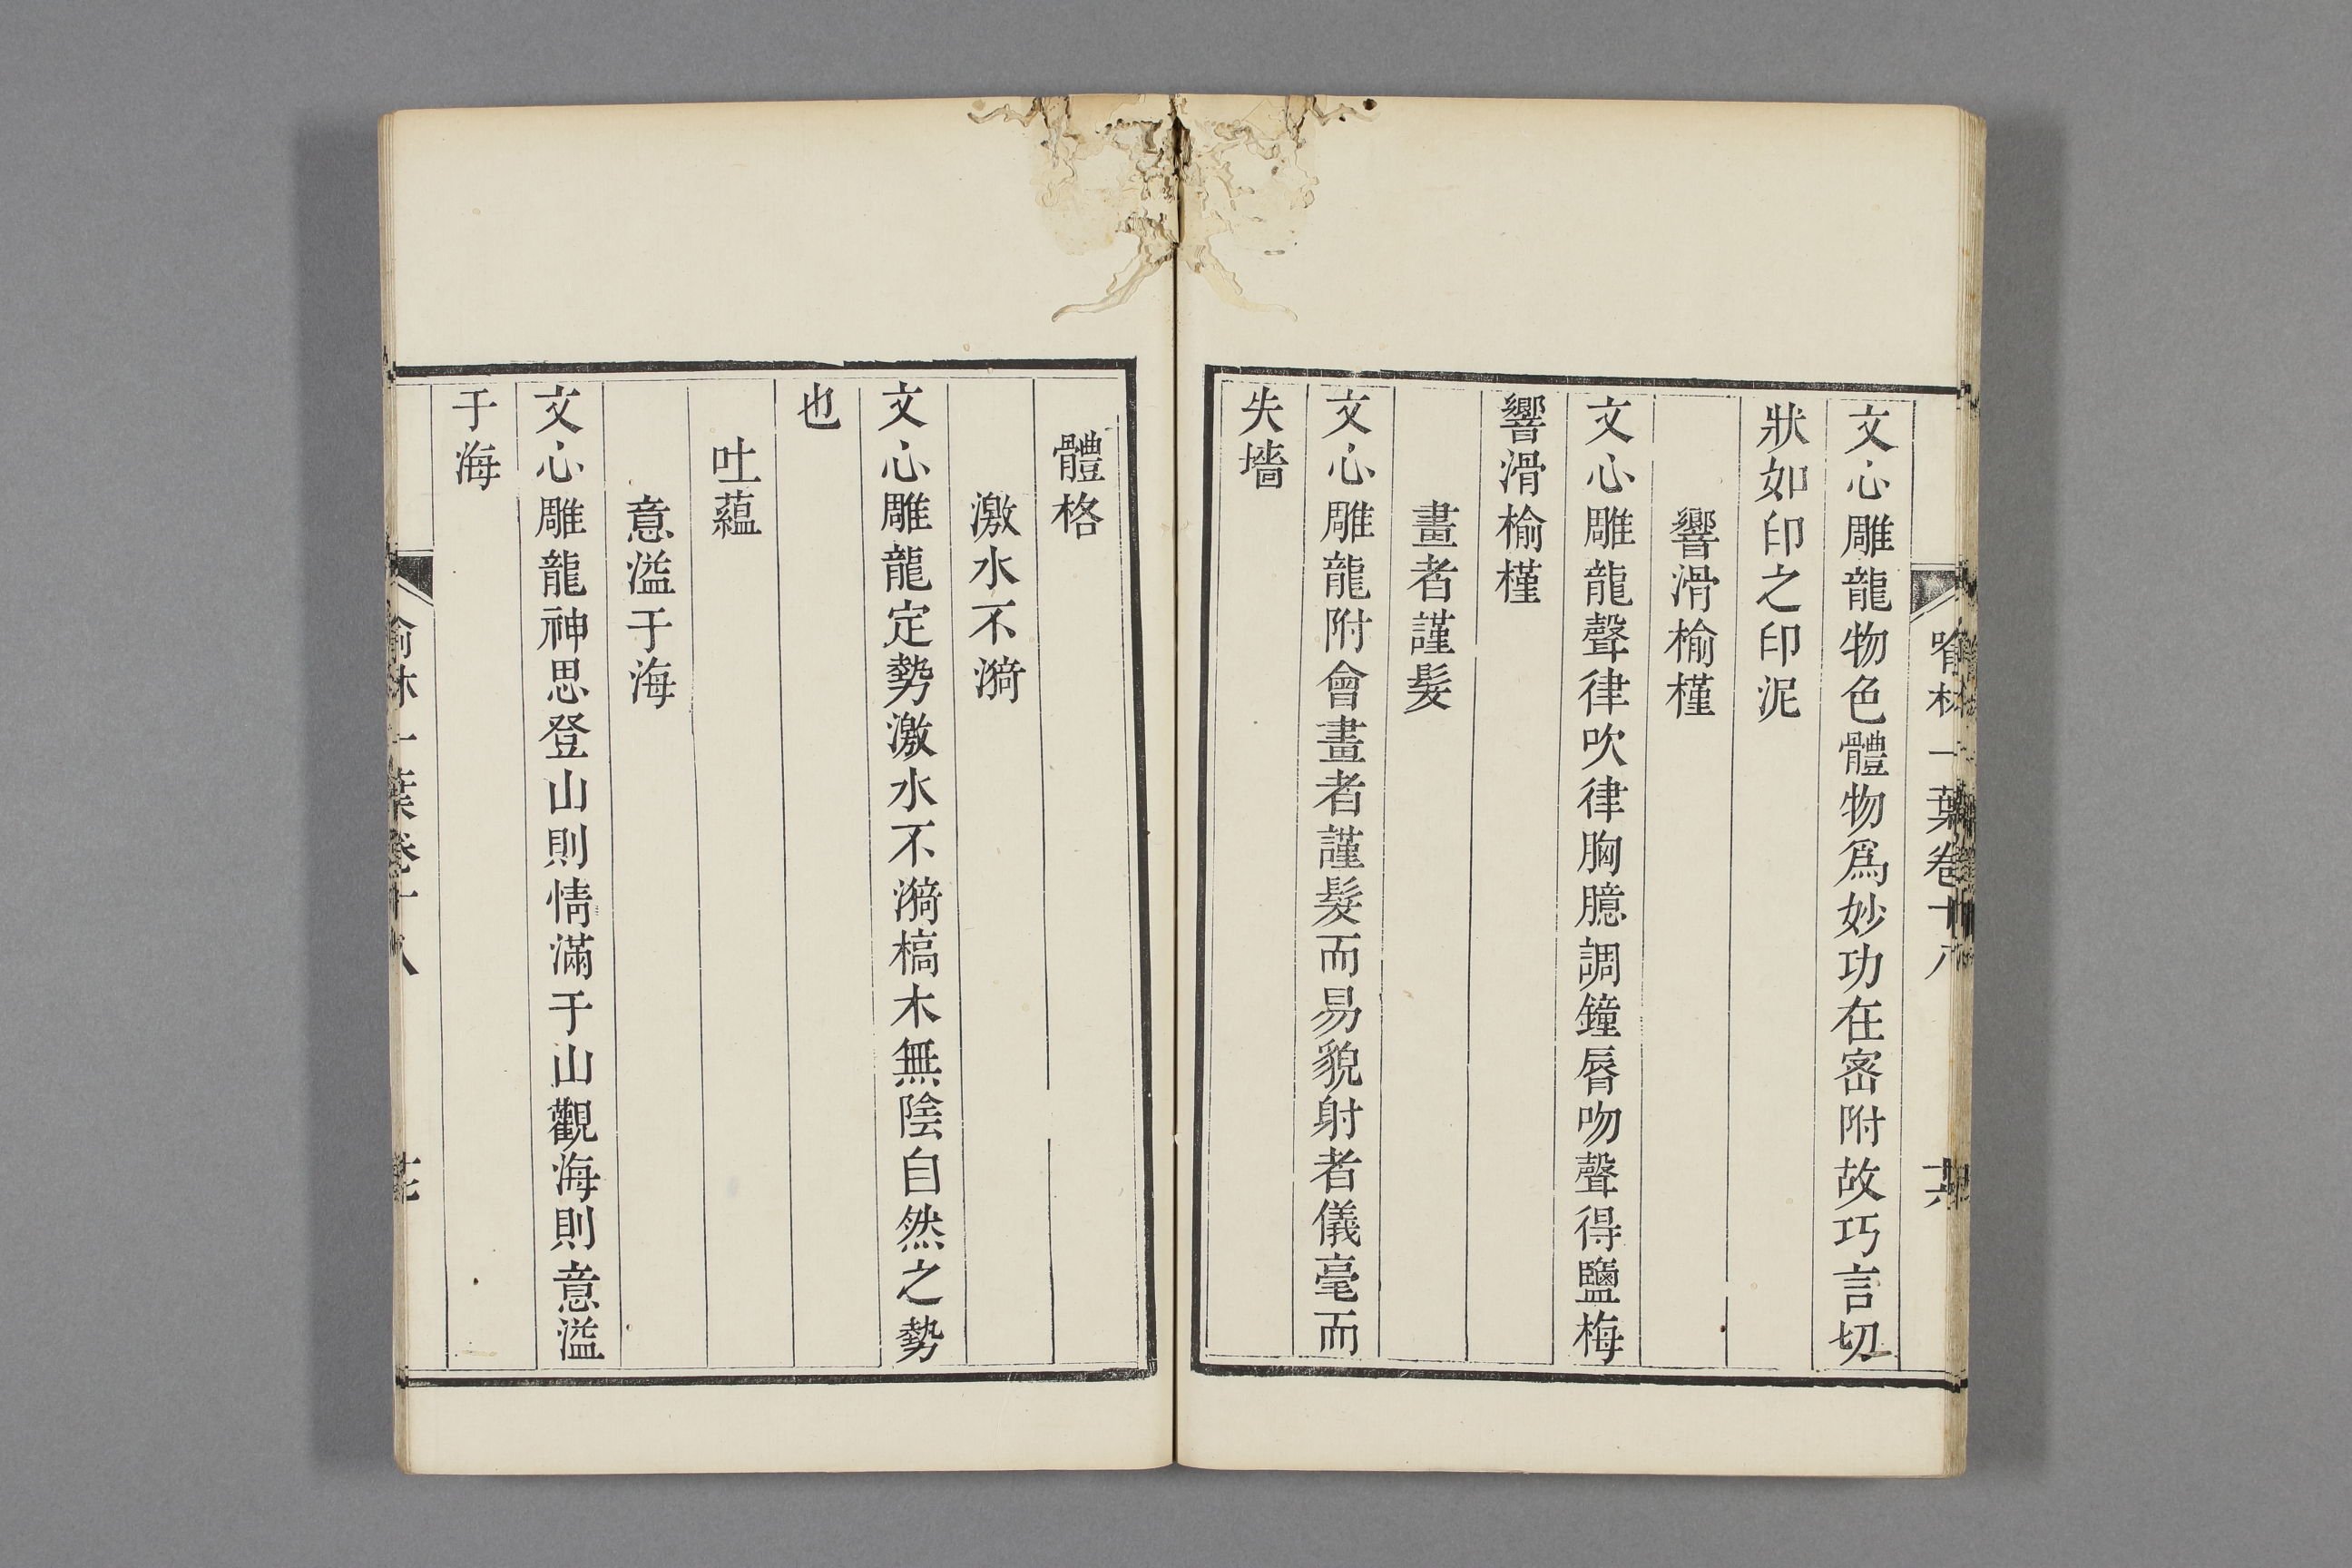 文心雕龍物色體物爲妙功在密附故巧言切
狀如印之印泥
響滑榆槿
文心雕龍聲律吹律胸臆調鐘脣吻聲得鹽梅
響滑榆槿
畫者謹髮
文心雕龍附會畫者謹髮而易貌射者儀毫而
失墻
體格
激水不漪
文心雕龍定勢激水不漪槁木無陰自然之勢
也
吐蘊
意溢于海
文心雕龍神思登山則情滿于山觀海則意溢
于海